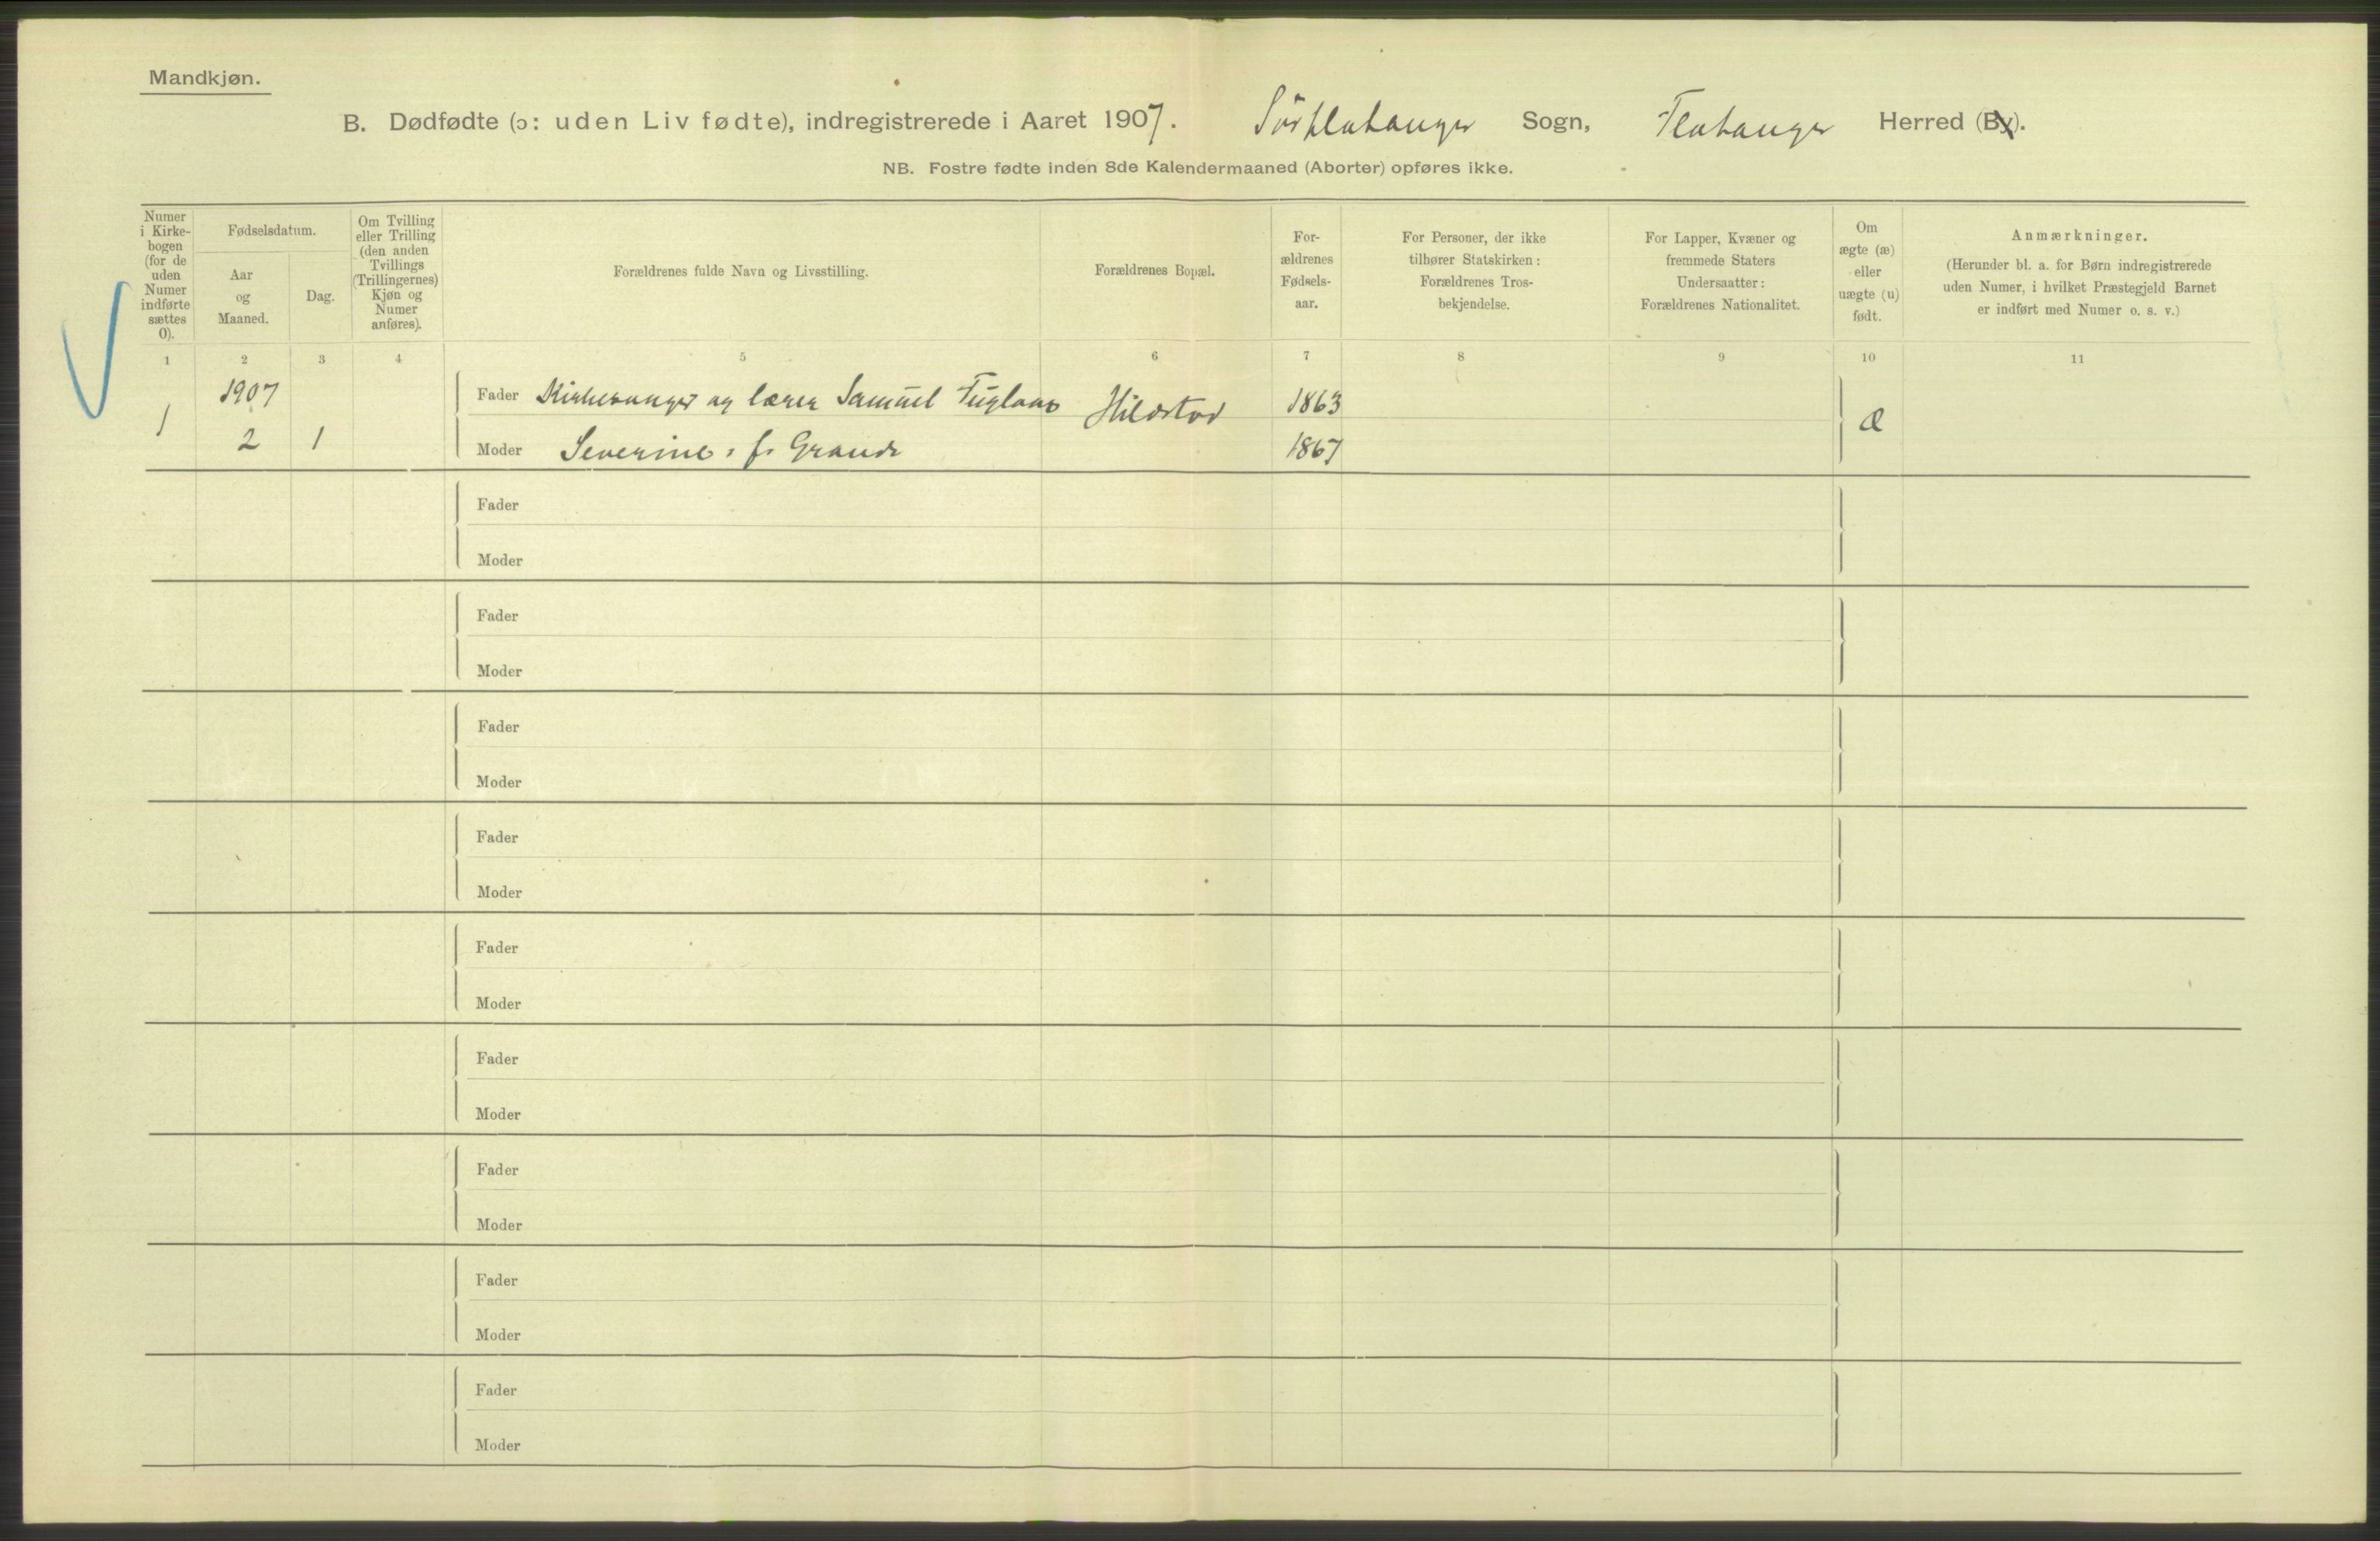 Mandkjøn.
B. Dødfødte (ɔ: uden Liv fødte), indregistrerede i Aaret 1907. Sörflatanger Sogn, Flatanger Herred (By).
NB. Fostre fødte inden 8de Kalendermaaned (Aborter) opføres ikke.
Numer
i Kirke-
bogen
(for de
uden
Numer
indførte
sættes
0).
Fødselsdatum.
Aar
og
Maaned.
Dag.
Om Tvilling
eller Trilling
(den anden
Tvillings
(Trillingernes)
Kjøn og
Numer
anføres).
Forældrenes fulde Navn og Livsstilling.
Forældrenes Bopæl.
For-
ældrenes
Fødsels-
aar.
For Personer, der ikke
tilhører Statskirken:
Forældrenes Tros-
bekjendelse.
For Lapper, Kvæner og
fremmede Staters
Undersaatter:
Forældrenes Nationalitet.
Om
ægte (æ)
eller
uægte (u)
født.
Anmærkninger.
(Herunder bl. a. for Børn indregistrerede
uden Numer, i hvilket Præstegjeld Barnet
er indført med Numer o. s. v.)
1 2 3 4 5 6 7 8 9 10 11
1907
1
2 1
Fader Kirkesanger og lærer Samuel Fuglaas Hildstad 1863
æ
Moder Severine, f. Grande 1867
Fader
Moder
Fader
Moder
Fader
Moder
Fader
Moder
Fader
Moder
Fader
Moder
Fader
Moder
Fader
Moder
Fader
Moder